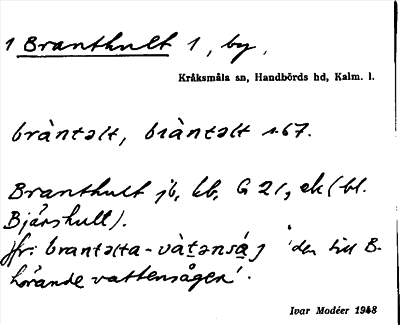 1 Branthult 1, by,
Kråksmåla sn, Handbörds hd, Kalm. l.
bràntəlt, bràntəlt s. 67.
Branthult jb, kb, G 21, ek (bl.
Bjärshult).
jfr: brantəlta-vàtənså̀ 'den till B.
hörande vattensågen'.
Ivar Modéer 1948